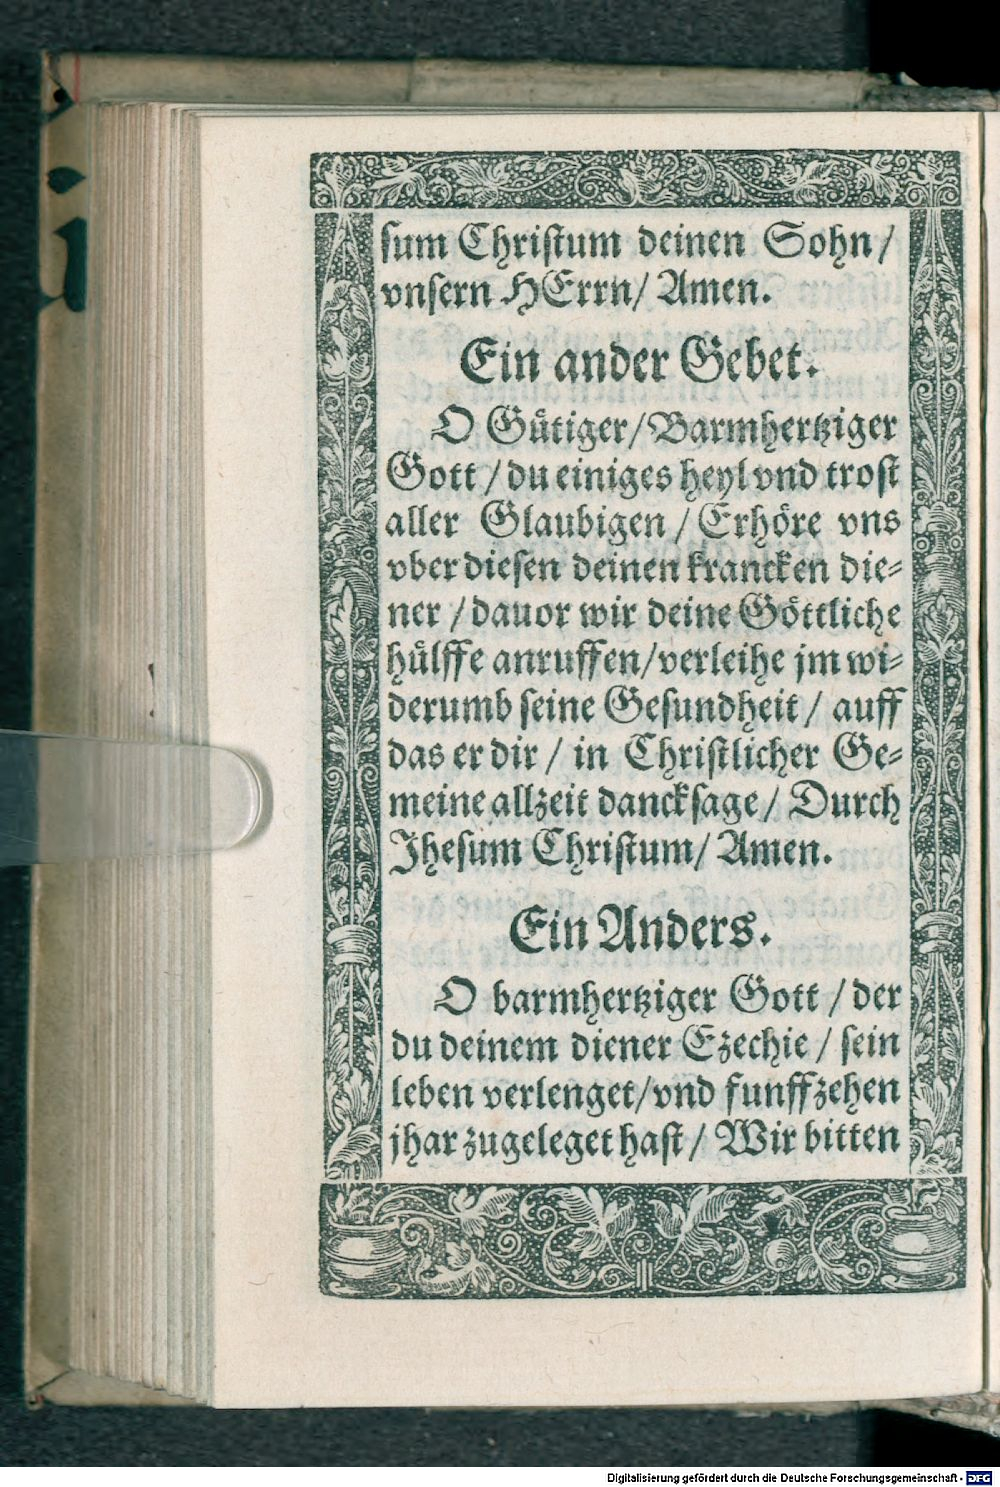 sum Christum deinen Sohn /
vnsern HErrn / Amen.
Ein ander Gebet.
O Gütiger / Barmhertziger
Gott / du einiges heyl vnd trost
aller Glaubigen / Erhöre vns
vber diesen deinen krancken die-
ner / dauor wir deine Göttliche
hülffe anruffen / verleihe jm wi-
derumb seine Gesundheit / auff
das er dir / in Christlicher Ge-
meine allzeit dancksage / Durch
Jhesum Christum / Amen.
Ein Anders.
O barmhertziger Gott / der
du deinem diener Ezechie / sein
leben verlenget / vnd funffzehen
jhar zugeleget hast / Wir bitten
Digitalisierung gefördert durch die Deutsche Forschungsgemeinschaft - DFG